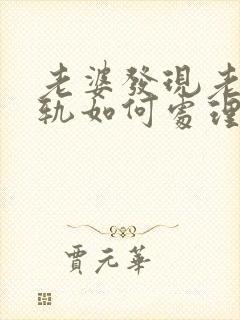 老婆發現老
軌如何處理
賈元華